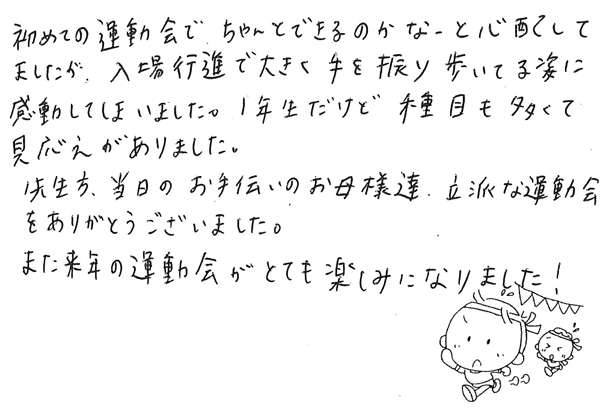 初めての運動会で、ちゃんとできるのかなーと心配して
ましたが、入場行進で大きく手を振り歩いてる姿に
感動してしまいました。1年生だけど種目も多くて
見応えがありました。
先生方、当日のお手伝いのお母様達、立派な運動会
をありがとうございました。
また来年の運動会がとても楽しみになりました!